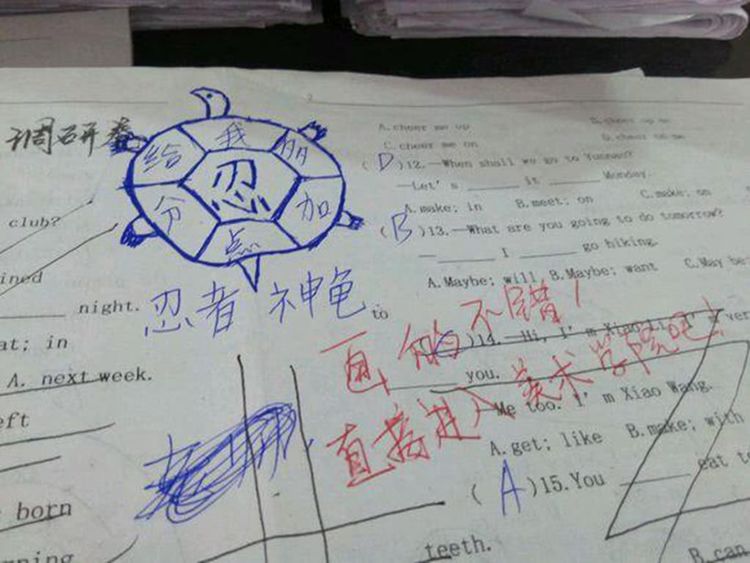 调研卷
给 我
忍
分 加
点
忍者神龟
club?
night.
at; in
A. next week.
born
A. cheer me up
C. cheer me on
(D)12.—When shall we go to Yunnan?
—Let's ______ it ______ Monday.
A. make; in B. meet; on C. make; on
(B)13.—What are you going to do tomorrow?
— ______ I ______ go hiking.
A. Maybe; will B. Maybe; want C. May be
to
画的不错!
)14.—Hi, I'm Xiao Li. I'm ver
______ you.
直接进入美术学院吧!
Me too. I'm Xiao Wang.
A. get; like B. make; with
(A)15. You ______ eat to
teeth.
B. can